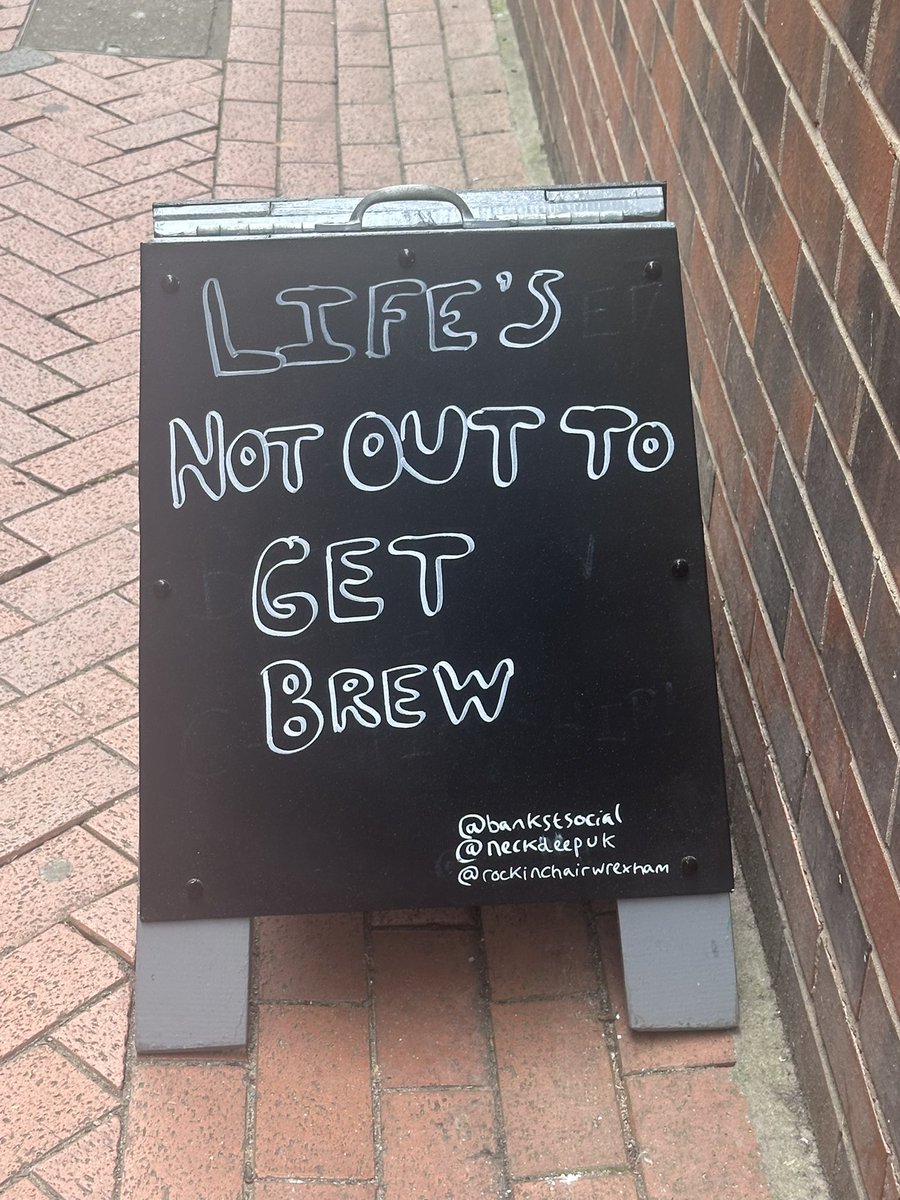 LIFE'S
NOT OUT TO
GET
BREW
@bankstsocial
@neckdeepuk
@rockinchairwrexham